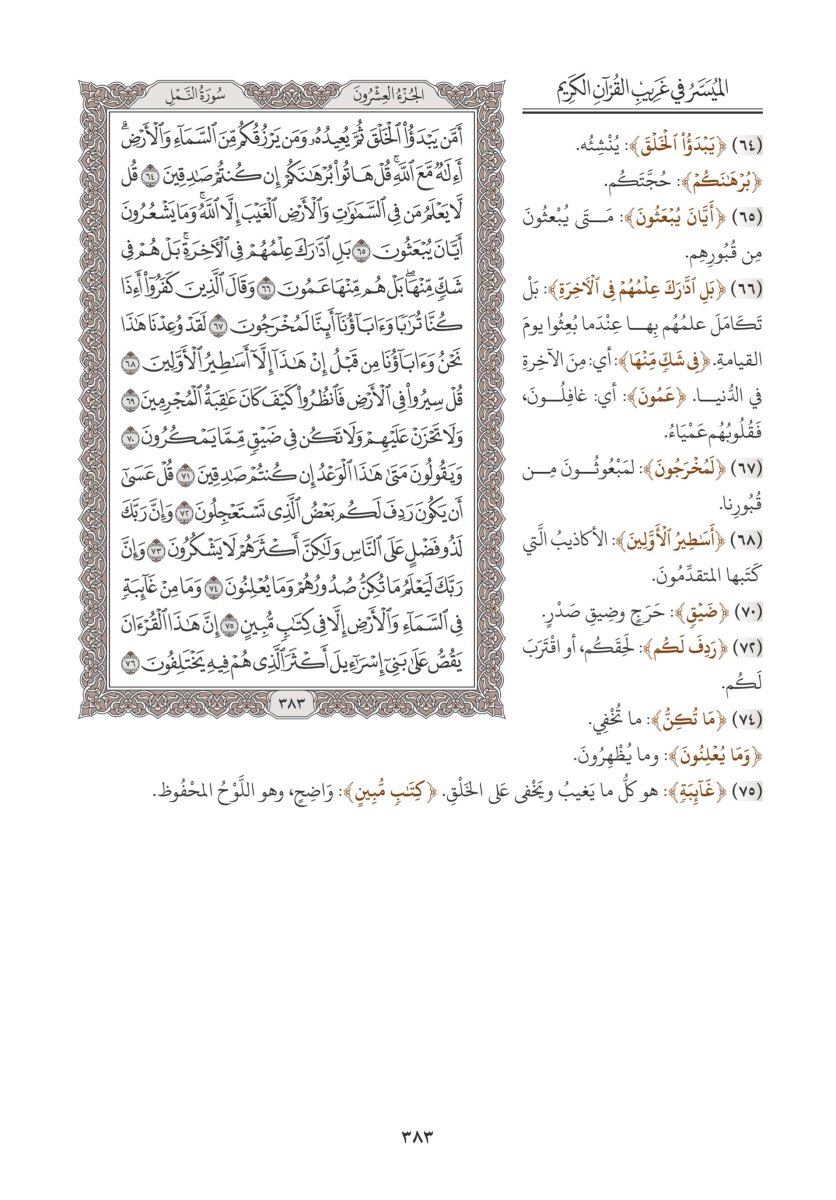 الميسر في غريب القرآن الكريم
(٦٤) ﴿يَبْدَؤُاْ ٱلْخَلْقَ﴾: يُنْشِئُه.
﴿بُرْهَٰنَكُمْ﴾: حُجَّتَكُم.
(٦٥) ﴿أَيَّانَ يُبْعَثُونَ﴾: مَتَى يُبْعثُونَ
مِن قُبُورِهِم.
(٦٦) ﴿بَلِ ٱدَّٰرَكَ عِلْمُهُمْ فِى ٱلْأٓخِرَةِ﴾: بَلْ
تَكَامَلَ علمُهُم بِها عِندَما بُعِثُوا يومَ
القيامةِ. ﴿فِى شَكٍّ مِّنْهَا﴾: أي: مِنَ الآخِرةِ
في الدُّنيا. ﴿عَمُونَ﴾: أي: غافِلُونَ،
فَقُلُوبُهُم عَمْيَاءُ.
(٦٧) ﴿لَمُخْرَجُونَ﴾: لمَبْعُوثُونَ مِن
قُبُورِنا.
(٦٨) ﴿أَسَٰطِيرُ ٱلْأَوَّلِينَ﴾: الأكاذيبُ الَّتي
كَتَبها المتقدِّمُونَ.
(٧٠) ﴿ضَيْقٍ﴾: حَرَجٍ وضِيقِ صَدْرٍ.
(٧٢) ﴿رَدِفَ لَكُم﴾: لَحِقَكُم، أو اقْتَرَبَ
لَكُم.
(٧٤) ﴿مَا تُكِنُّ﴾: ما تُخْفِي.
﴿وَمَا يُعْلِنُونَ﴾: وما يُظْهِرُونَ.
(٧٥) ﴿غَآئِبَةٍ﴾: هو كلُّ ما يَغيبُ ويَخْفى عَلى الخَلْقِ. ﴿كِتَٰبٍ مُّبِينٍ﴾: وَاضِحٍ، وهو اللَّوْحُ المحْفُوظ.
الجزء العشرون
سورة النمل
أَمَّن يَبْدَؤُاْ ٱلْخَلْقَ ثُمَّ يُعِيدُهُۥ وَمَن يَرْزُقُكُم مِّنَ ٱلسَّمَآءِ وَٱلْأَرْضِۗ
أَءِلَٰهٌ مَّعَ ٱللَّهِۚ قُلْ هَاتُواْ بُرْهَٰنَكُمْ إِن كُنتُمْ صَٰدِقِينَ ٦٤ قُل
لَّا يَعْلَمُ مَن فِى ٱلسَّمَٰوَٰتِ وَٱلْأَرْضِ ٱلْغَيْبَ إِلَّا ٱللَّهُۚ وَمَا يَشْعُرُونَ
أَيَّانَ يُبْعَثُونَ ٦٥ بَلِ ٱدَّٰرَكَ عِلْمُهُمْ فِى ٱلْأٓخِرَةِۚ بَلْ هُمْ فِى
شَكٍّ مِّنْهَاۖ بَلْ هُم مِّنْهَا عَمُونَ ٦٦ وَقَالَ ٱلَّذِينَ كَفَرُوٓاْ أَءِذَا
كُنَّا تُرَٰبًا وَءَابَآؤُنَآ أَئِنَّا لَمُخْرَجُونَ ٦٧ لَقَدْ وُعِدْنَا هَٰذَا
نَحْنُ وَءَابَآؤُنَا مِن قَبْلُ إِنْ هَٰذَآ إِلَّآ أَسَٰطِيرُ ٱلْأَوَّلِينَ ٦٨
قُلْ سِيرُواْ فِى ٱلْأَرْضِ فَٱنظُرُواْ كَيْفَ كَانَ عَٰقِبَةُ ٱلْمُجْرِمِينَ ٦٩
وَلَا تَحْزَنْ عَلَيْهِمْ وَلَا تَكُن فِى ضَيْقٍ مِّمَّا يَمْكُرُونَ ٧٠
وَيَقُولُونَ مَتَىٰ هَٰذَا ٱلْوَعْدُ إِن كُنتُمْ صَٰدِقِينَ ٧١ قُلْ عَسَىٰٓ
أَن يَكُونَ رَدِفَ لَكُم بَعْضُ ٱلَّذِى تَسْتَعْجِلُونَ ٧٢ وَإِنَّ رَبَّكَ
لَذُو فَضْلٍ عَلَى ٱلنَّاسِ وَلَٰكِنَّ أَكْثَرَهُمْ لَا يَشْكُرُونَ ٧٣ وَإِنَّ
رَبَّكَ لَيَعْلَمُ مَا تُكِنُّ صُدُورُهُمْ وَمَا يُعْلِنُونَ ٧٤ وَمَا مِنْ غَآئِبَةٍ
فِى ٱلسَّمَآءِ وَٱلْأَرْضِ إِلَّا فِى كِتَٰبٍ مُّبِينٍ ٧٥ إِنَّ هَٰذَا ٱلْقُرْءَانَ
يَقُصُّ عَلَىٰ بَنِىٓ إِسْرَٰٓءِيلَ أَكْثَرَ ٱلَّذِى هُمْ فِيهِ يَخْتَلِفُونَ ٧٦
٣٨٣
٣٨٣